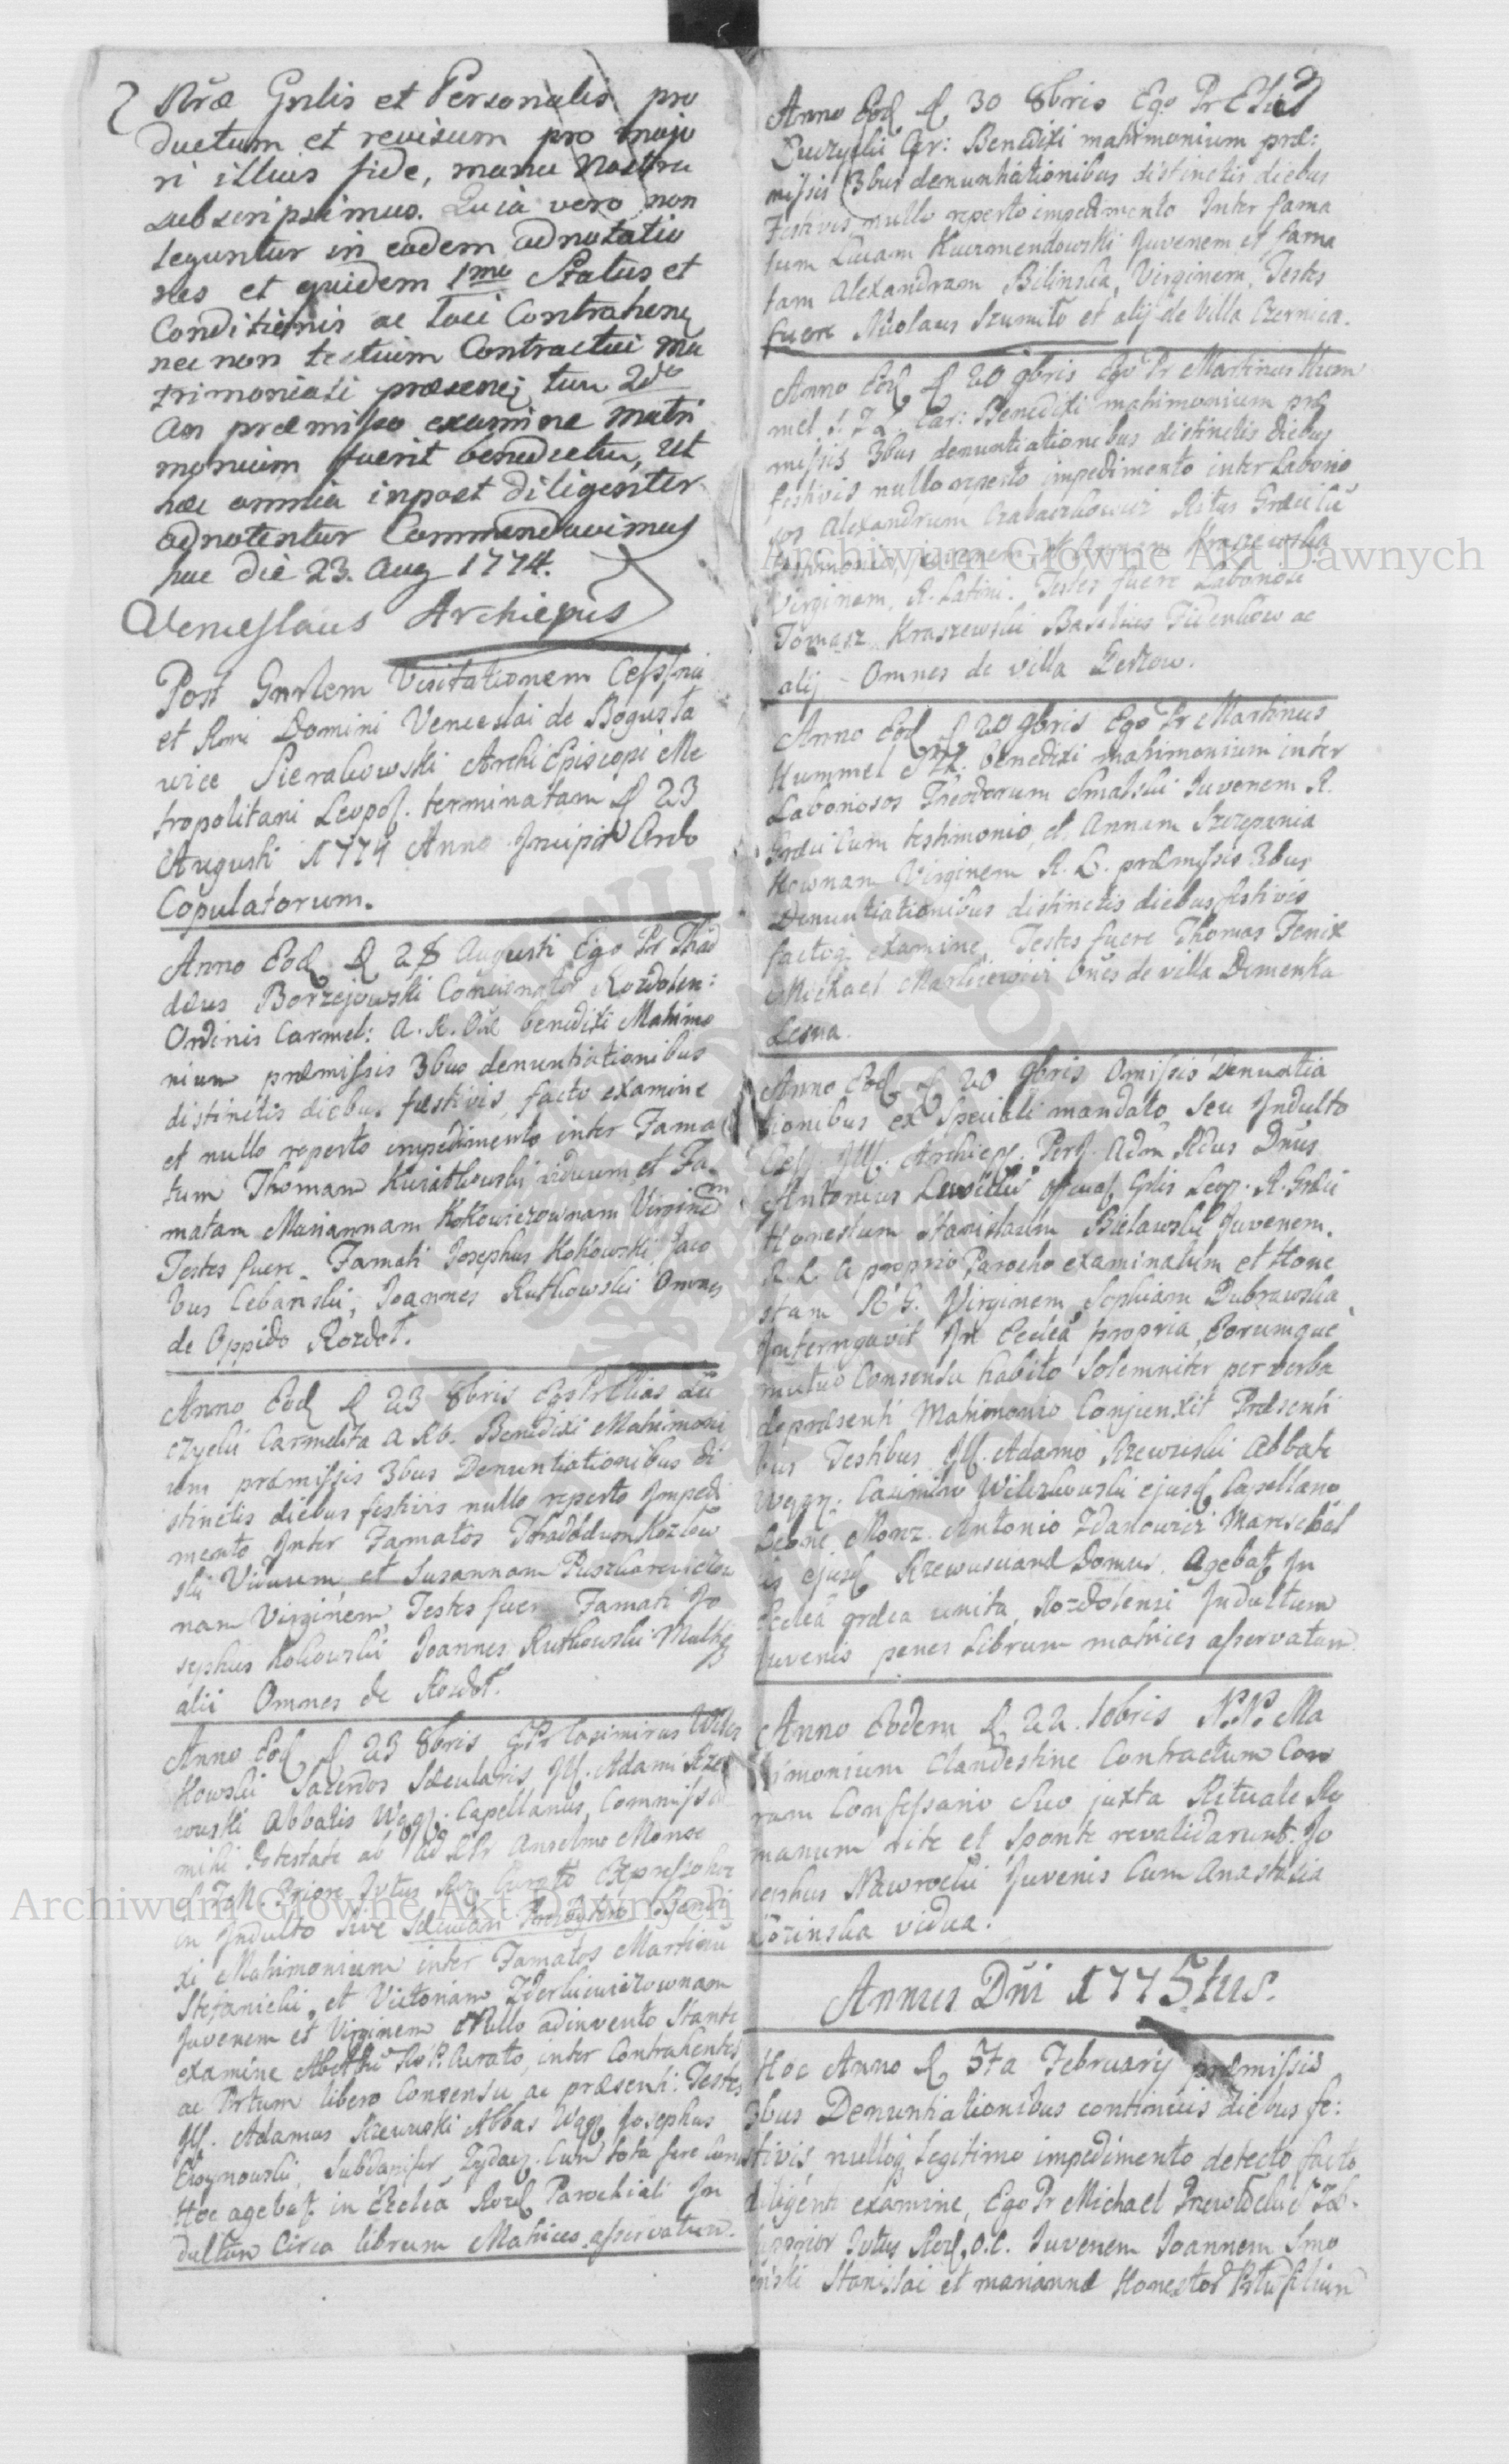 Nr̃æ Gnlis et Personalis pro
ductum et revisum pro majo
ri illius fide, manu Nostra
subscripsimus. Quia vero non
leguntur in eodem adnotatio
nes et quidem 1mo Status et
Conditionis ac loci Contrahen
nec non testium Contractui ma
trimoniali præsen tum 2do
An præmisso examine matri
monium fuerit benedictu, Ut
hæc omnia inpost diligenter
adnotentur Commendavimus
hac die 23. Aug 1774.
Wenceslaus Archiepus
Post Gnrlem Visitationem
et Rmi Domini Venceslai de Bogusla
wice Sierakowski Archi Episcopi Me
tropolitani Leopol. terminatam d 23
Augusti 1774 Anno Incipit Ordo
Copulatorum.
Anno Eod d 28 Augusti Ego Pr Thad
deus Borzejowski Concionator Rozdolen:
Ordinis Carmel: A. R. benedixi Matrimo
nium præmissis 3bus denuntiationibus
distinctis diebus festivis, facto examine
et nullo reperto impedimento inter Fama
tum Thomam Kwiatkowski viduum et Fa
matam Mariannam Kokowiczownam Virginem
Testes fuere Famati Josephus Kokowski, Jaco
bus Cebanski, Joannes Rutkowski Omnes
de Oppido Rozdoł.
Anno Eod d 23 8bris Ego Pr Elias Lu
czycki Carmelita A R. Benedixi Matrimoni
um præmissis 3bus Denuntiationibus di
stinctis diebus festivis nullo reperto Impedi
mento Inter Famatos Thaddæum Kozlow
ski Viduum et Susannam Puszkarewiczow
nam Virginem, Testes fuere Famati Jo
sephus Kokowski Joannes Rutkowski Multiq
alii Omnes de Rozdoł.
Anno Eod d 23 8bris E Pr Casimirus Wilcz
kowski Sacerdos Sæcularis Ill. Adami Rze
wuski Abbatis Wągr. Capellanus, Commissa
mihi Potestate ab Ad R Pr Anselmo
Priore Curato Expresso hoc
in Indulto sive Benedi
xi Matrimonium inter Famatos Martinu
Stefanicki et Victoriam
Juvenem et Virginem Nullo adinvento Stante
examine Curato, inter Contrahentes
ac Partum libero Consensu ac præsenti: Testes
Ill. Adamus Rzewuski Abbas Wągr Josephus
Choynowski, Subdapifer Zydacz. Cum tota fere
Hoc agebat in Eccleā Rozd Parochiali In
dultum Circa librum Matrices asservatum.
Anno Eod d 30 8bris Ego Pr Elias
Luczycki Car: Benedixi matrimonium præ:
missis 3bus denuntiationibus distinctis diebus
Festivis nullo reperto impedimento Inter fama
tum Lucam Kuczmendowski Juvenem et fama
tam Alexandram Bilinska, Virginem, Testes
fuere Nicolaus Szumiło et alij de Villa Czernica.
Anno Eod d 20 9bris Ego Pr Martinus Hum
mel Car: Benedixi matrimonium præ
missis 3bus denuntiationibus distinctis diebus
festivis nullo reperto impedimento inter Laborio
sos Alexandrum Ritus Græci Cū
testimonio, juvenem et Annam Kraszewska
Virginem, R. Latini. Testes fuere Laboriosi
Tomasz Kraszewski Basilius Fidenkow ac
alij - Omnes de villa
Anno Eod d 20 9bris Ego Pr Martinus
Hummel benedixi matrimonium inter
Laboriosos Theodorum Smalski Juvenem R.
Græci Cum testimonio, et Annam Szczepania
kownam Virginem R. L. præmissis 3bus
Denuntiationibus distinctis diebus festivis
factoq examine, Testes fuere Thomas Fenix
Michael Markiewicz ōnes de villa Demenka
Lesna.
Anno Eod d 20 9bris Omissis Denuntia
tionibus ex Speciali mandato, seu Indulto
Ill. Archiepi. Adm Rdus Dnus
Antonius Gnlis Leop. R. Græci
Honestum Stanislaum Bielawski Juvenem.
R. L a proprio Parocho examinatum et Hone
stam R G. Virginem Sophiam Dubrawska
Interrogavit In Eccleā propria, Eorumque
mutuo Consensu habito Solemniter per verba
de præsenti Matrimonio Conjunxit Præsenti
bus Testibus Ill. Adamo Rzewuski Abbate
Wągr. Casimiro Wilczkowski ejusd Capellano
Antonio Zdanowicz Mareschal
ejusd Rzewuscianæ Domus. Agebat In
Eccleā græca unita, Rozdolensi Indultum
Juvenis penes Librum matrices asservatum.
Anno Eodem d 22. 10bris N. N. Ma
trimonium Clandestine Contractum Cor
ram Confessario Suo juxta Rituale Ro
manum rite et Sponte revalidarunt Jo
sephus Nawrocki Juvenis Cum Anastasia
vidua.
Annus Dni 1775tus.
Hoc Anno d 5ta February præmissis
3bus Denuntiationibus continuis diebus fe:
stivis, nulloq legitimo impedimento detecto, facto
diligenti examine, Ego Pr Michael
Superior Rozd. O.C. Juvenem Joannem Smo
Stanislai et mariannæ Honestor filium
Archiwum Główne Akt Dawnych
Archiwum Główne Akt Dawnych